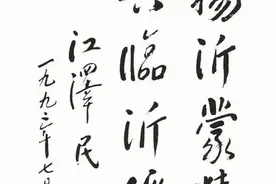 扬沂蒙
临沂
江泽民
一九九二年七月